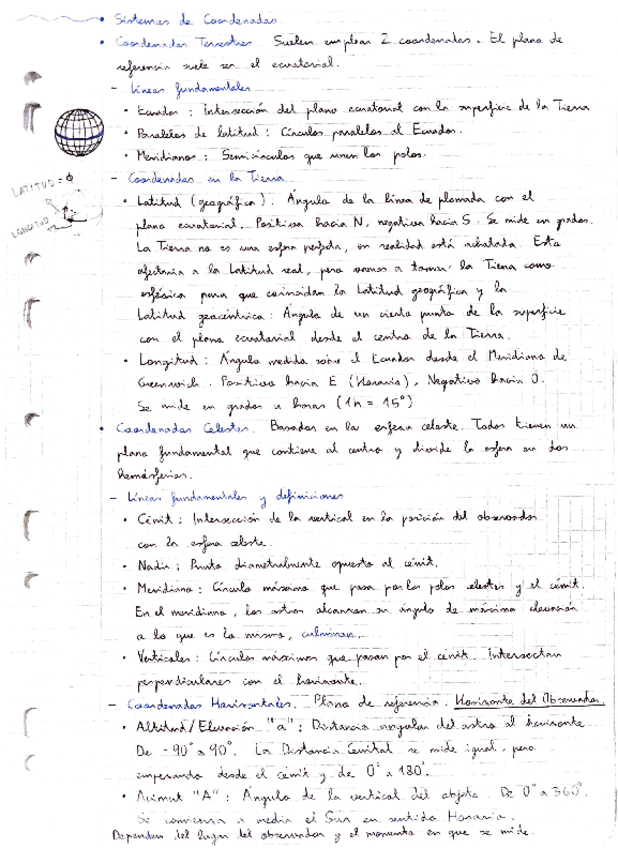 • Sistemas de Coordenadas
• Coordenadas Terrestres. Suelen emplear 2 coordenadas. El plano de
referencia suele ser el ecuatorial.
- Líneas fundamentales
• Ecuador: Intersección del plano ecuatorial con la superficie de la Tierra
• Paralelos de latitud: Círculos paralelos al Ecuador.
• Meridianos: Semicírculos que unen los polos.
- Coordenadas en la Tierra
LATITUD = ϕ
LONGITUD
• Latitud (geográfica): Ángulo de la línea de plomada con el
plano ecuatorial. Positiva hacia N, negativa hacia S. Se mide en grados.
La Tierra no es una esfera perfecta, en realidad está achatada. Esto
afectaría a la Latitud real, pero vamos a tomar la Tierra como
esférica para que coincidan la Latitud geográfica y la
Latitud geocéntrica: Ángulo de un cierto punto de la superficie
con el plano ecuatorial desde el centro de la Tierra.
• Longitud: Ángulo medido sobre el Ecuador desde el Meridiano de
Greenwich. Positivo hacia E (Horario), Negativo hacia O.
Se mide en grados u horas (1h = 15°)
• Coordenadas Celestes. Basadas en la esfera celeste. Todos tienen un
plano fundamental que contiene al centro y divide la esfera en dos
hemisferios.
- Líneas fundamentales y definiciones
• Cénit: Intersección de la vertical en la posición del observador
con la esfera celeste.
• Nadir: Punto diametralmente opuesto al cénit.
• Meridiano: Círculo máximo que pasa por los polos celestes y el cénit.
En el meridiano, los astros alcanzan su ángulo de máxima elevación
o lo que es lo mismo, culminan.
• Verticales: Círculos máximos que pasan por el cénit. Intersectan
perpendiculares con el horizonte.
- Coordenadas Horizontales. Plano de referencia: Horizonte del Observador.
• Altitud/Elevación "a": Distancia angular del astro al horizonte
De -90° a 90°. La Distancia Cenital se mide igual, pero
empezando desde el cénit y de 0° a 180°.
• Azimut "A": Ángulo de la vertical del objeto. De 0° a 360°.
Se comienza a medir el Sur en sentido Horario.
Dependen del lugar del observador y el momento en que se mide.